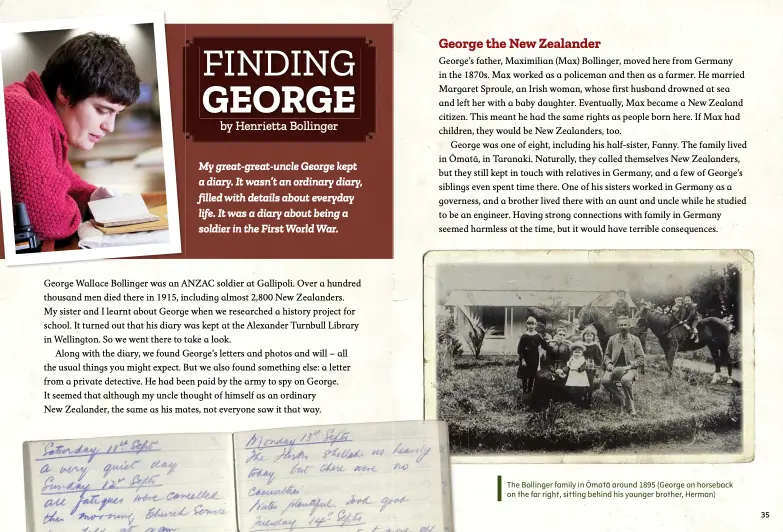 FINDING
GEORGE
by Henrietta Bollinger
My great-great-uncle George kept
a diary. It wasn't an ordinary diary,
filled with details about everyday
life. It was a diary about being a
soldier in the First World War.
George Wallace Bollinger was an ANZAC soldier at Gallipoli. Over a hundred
thousand men died there in 1915, including almost 2,800 New Zealanders.
My sister and I learnt about George when we researched a history project for
school. It turned out that his diary was kept at the Alexander Turnbull Library
in Wellington. So we went there to take a look.
Along with the diary, we found George's letters and photos and will – all
the usual things you might expect. But we also found something else: a letter
from a private detective. He had been paid by the army to spy on George.
It seemed that although my uncle thought of himself as an ordinary
New Zealander, the same as his mates, not everyone saw it that way.
Saturday 11th Sept
A very quiet day
Sunday 12th Septr
All fatigues were cancelled
this morning, Church Service
Monday 13th Septr
The Turks shelled us heavily
today but there were no
casualties.
Water plentiful food good
Tuesday 14th Septr
George the New Zealander
George's father, Maximilian (Max) Bollinger, moved here from Germany
in the 1870s. Max worked as a policeman and then as a farmer. He married
Margaret Sproule, an Irish woman, whose first husband drowned at sea
and left her with a baby daughter. Eventually, Max became a New Zealand
citizen. This meant he had the same rights as people born here. If Max had
children, they would be New Zealanders, too.
George was one of eight, including his half-sister, Fanny. The family lived
in Ōmatā, in Taranaki. Naturally, they called themselves New Zealanders,
but they still kept in touch with relatives in Germany, and a few of George's
siblings even spent time there. One of his sisters worked in Germany as a
governess, and a brother lived there with an aunt and uncle while he studied
to be an engineer. Having strong connections with family in Germany
seemed harmless at the time, but it would have terrible consequences.
The Bollinger family in Ōmatā around 1895 (George on horseback
on the far right, sitting behind his younger brother, Herman)
35